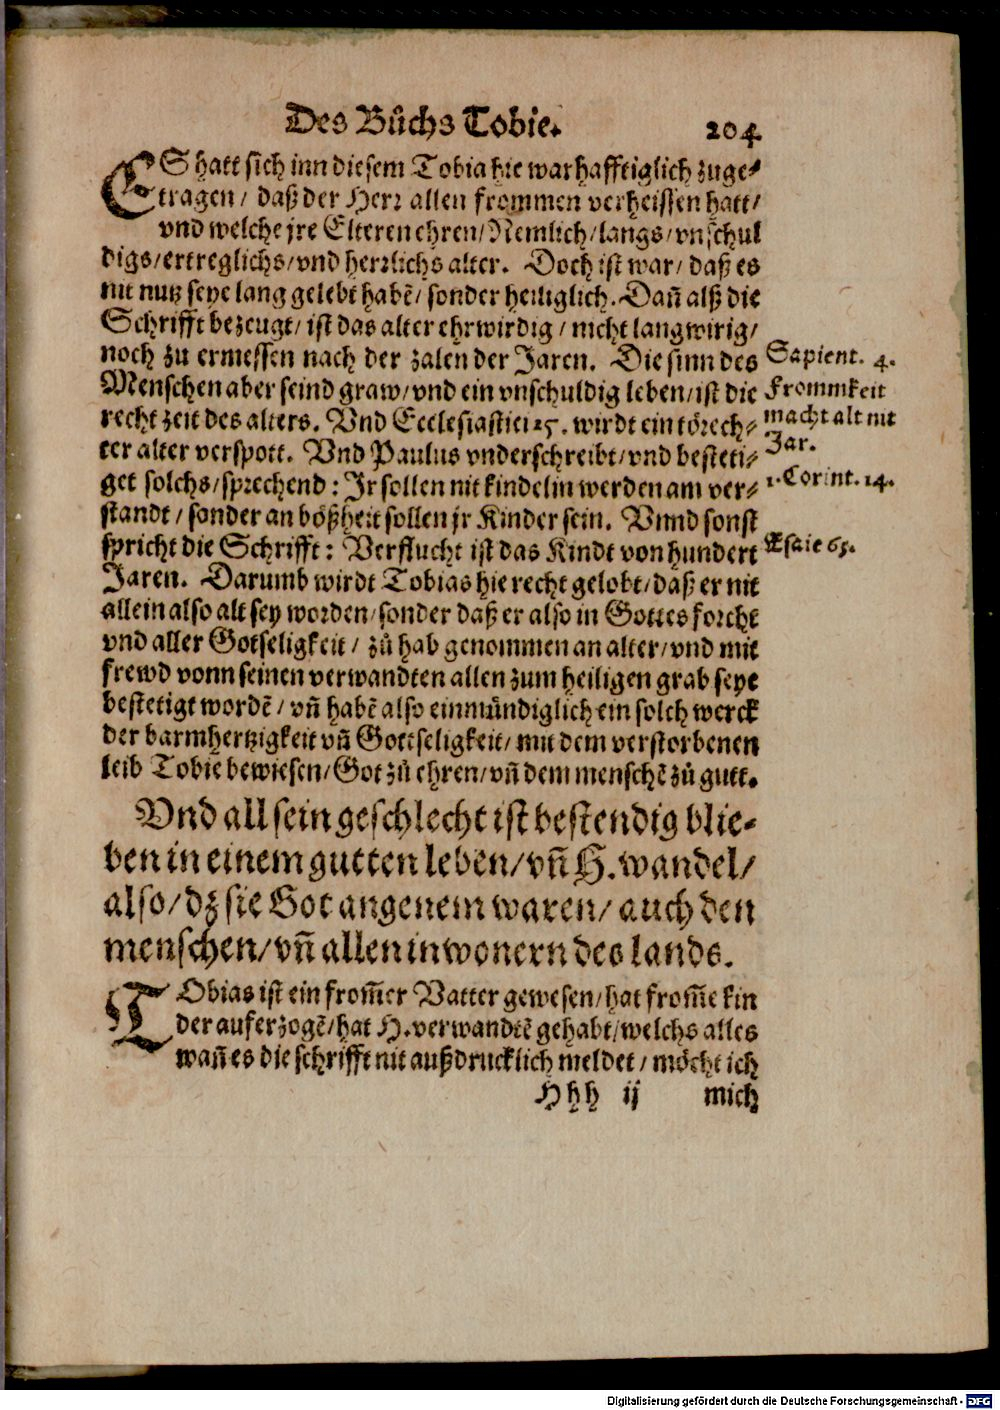 Des Bůchs Tobie. 204
ES hatt sich inn diesem Tobia hie warhafftiglich zuge-
tragen/ daß der Herr allen frommen verheissen hatt/
vnd welche jre Elteren ehren/ Nemlich/ langs/ vnschul
digs/ ertreglichs/ vnd herrlichs alter. Doch ist war/ daß es
nit nutz seye lang gelebt habē/ sonder heiliglich. Dañ alß die
Schrifft bezeugt/ ist das alter ehrwirdig/ nicht langwirig/
noch zu ermessen nach der zalen der Jaren. Die sinn des
Sapient. 4.
Menschen aber seind graw/ vnd ein vnschuldig leben/ ist die
Frommkeit
recht zeit des alters. Vnd Ecclesiastici 25. wirdt ein törech-
macht alt nit
ter alter verspott. Vnd Paulus vnderschreibt/ vnd besteti-
Jar.
get solchs/ sprechend: Jr sollen nit kindelin werden am ver-
1. Corint. 14.
standt/ sonder an bößheit sollen jr Kinder sein. Vnnd sonst
spricht die Schrifft: Verflucht ist das Kindt von hundert
Esaie 65.
Jaren. Darumb wirdt Tobias hie recht gelobt/ daß er nit
allein also alt sey worden/ sonder daß er also in Gottes forcht
vnd aller Gotseligkeit/ zů hab genommen an alter/ vnd mit
frewd vonn seinen verwandten allen zum heiligen grab seye
bestetigt wordē/ vñ habē also einmündiglich ein solch werck
der barmhertzigkeit vñ Gottseligkeit/ mit dem verstorbenen
leib Tobie bewiesen/ Got zů ehren/ vñ dem menschē zů gutt.
Vnd all sein geschlecht ist bestendig blie-
ben in einem gutten leben/ vñ H. wandel/
also/ dz sie Got angenem waren/ auch den
menschen/ vñ allen inwonern des lands.
TObias ist ein from̃er Vatter gewesen/ hat from̃e kin
der auferzogē/ hat H. verwandtē gehabt/ welchs alles
wañ es die schrifft nit außdrucklich meldet/ möcht ich
Hhh ij mich
Digitalisierung gefördert durch die Deutsche Forschungsgemeinschaft - DFG